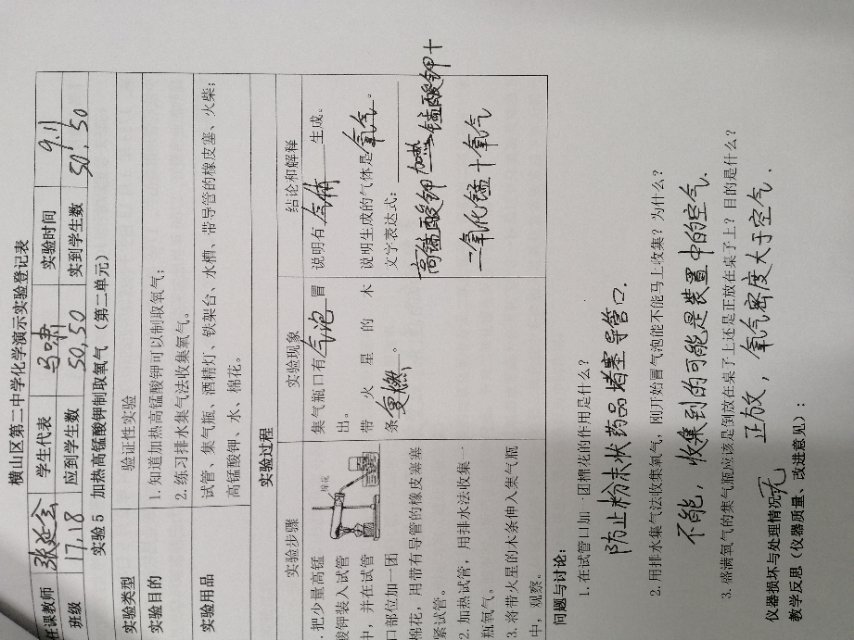 横山区第二中学化学演示实验登记表
任课教师 张延会 学生代表 马啸 实验时间 9.11
班级 17,18 应到学生数 50,50 实到学生数 50,50
实验5 加热高锰酸钾制取氧气（第二单元）
实验类型 验证性实验
实验目的 1.知道加热高锰酸钾可以制取氧气;
2.练习排水集气法收集氧气。
实验用品 试管、集气瓶、酒精灯、铁架台、水槽、带导管的橡皮塞、火柴;
高锰酸钾、水、棉花。
实验过程
实验步骤 实验现象 结论和解释
.把少量高锰
酸钾装入试管
中，并在试管
口部位加一团
棉花，用带有导管的橡皮塞塞
紧试管。
2. 加热试管，用排水法收集一
瓶氧气。
3. 将带火星的木条伸入集气瓶
中，观察。
棉花
集气瓶口有气泡冒
出。
带火星的木
条复燃。
说明有气体生成。
说明生成的气体是氧气。
文字表达式:
高锰酸钾 加热 锰酸钾+
二氧化锰+氧气
问题与讨论:
1. 在试管口加一团棉花的作用是什么?
防止粉末状药品堵塞导管口.
2. 用排水集气法收集氧气，刚开始冒气泡能不能马上收集? 为什么?
不能，收集到的可能是装置中的空气.
3. 盛满氧气的集气瓶应该是倒放在桌子上还是正放在桌子上? 目的是什么?
正放，氧气密度大于空气.
仪器损坏与处理情况:无
教学反思（仪器质量、改进意见）: